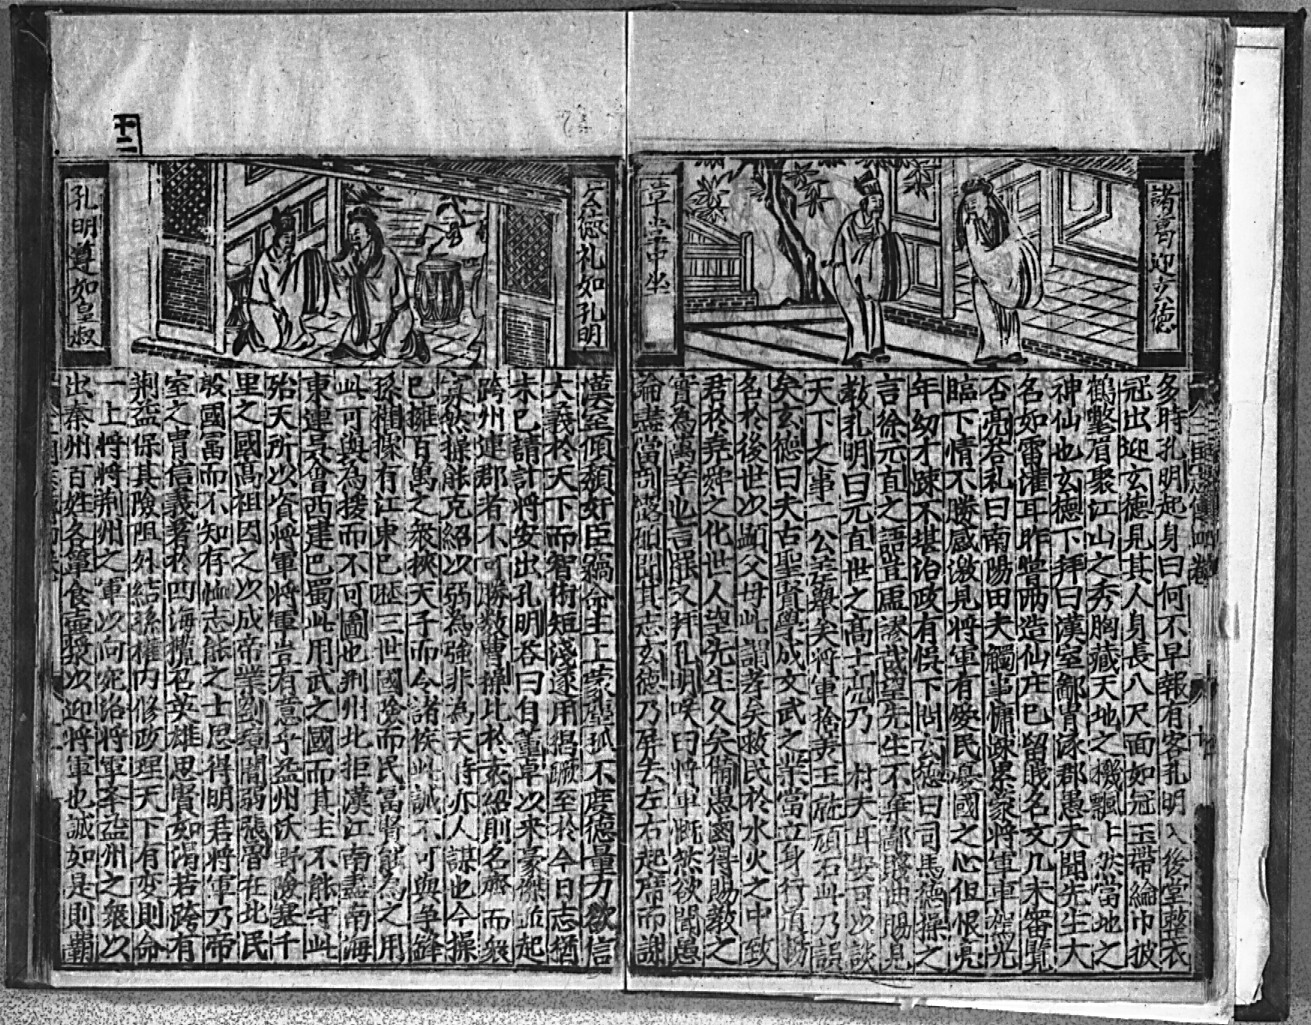 諸葛迎玄德
草堂中坐
多時孔明起身曰何不早報有客孔明入後堂整衣
冠出迎玄德見其人身長八尺面如冠玉帶綸巾披
鶴氅眉聚江山之秀胸藏天地之機飄上然當地之
神仙也玄德下拜曰漢室鄙胄涿郡愚夫聞先生大
名如雷灌耳昨曾兩造仙庄已留賤名文几未審覽
否亮答礼曰南陽田夫觸事慵疎累蒙將軍車駕光
臨下情不勝感激見將軍有愛民憂國之心但恨亮
年幼才疎不堪治政有悮下問玄德曰司馬德操之
言徐元直之語豈虛謬哉望先生不棄鄙賤曲賜見
教孔明曰元直世之高士亮乃一村夫耳安可以談
天下之事二公
舉矣將軍捨美玉
頑石此乃誤
矣玄德曰夫古聖賢學成文武之業當立身行道揚
名於後世以顯父母此謂孝矣救民於水火之中致
君於堯舜之化世人望先生久矣備愚鹵得賜教之
實為萬幸也言
又拜孔明
曰將軍慨然欲聞愚
論盡當剖
其志玄德乃屏去左右起席而謝
玄德礼如孔明
孔明尊如皇叔
漢室傾頹奸臣竊命主上蒙塵孤不度德量力欲信
大義於天下而智術短淺遂用猖蹶至於今日志猶
未已請計將安出孔明答曰自董卓以來豪傑並起
跨州連郡者不可勝數曹操比於袁紹則名微而衆
寡然操能克紹以弱為強非為天時亦人謀也今操
已擁百萬之衆挾天子而令諸侯此誠不可與爭鋒
孫權據有江東已歷三世國險而民富賢能為之用
此可與為援而不可圖也荆州北拒漢江南盡南海
東連吳會西建巴蜀此用武之國而其主不能守此
殆天所以資將軍將軍豈有意乎益州沃野險塞千
里之國高祖因之以成帝業劉璋闇弱張魯在北民
殷國富而不知存恤志能之士思得明君將軍乃帝
室之胄信義著於四海攬召英雄思賢如渴若跨有
荆益保其險阻外結孫權內修政理天下有变則命
一上將將荆州之軍以向宛洛將軍率益州之衆以
出秦州百姓各簞食壺漿以迎將軍也誠如是則霸
十二